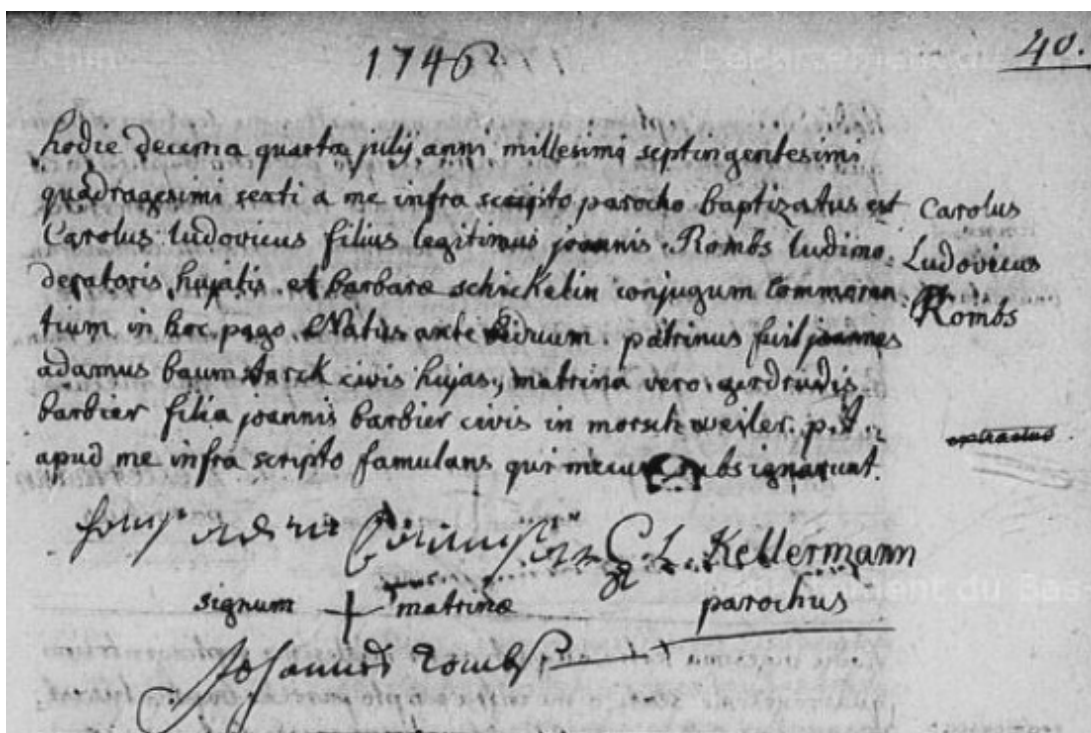 1746
40.
hodie decima quarta julij anni millesimi septingentesimi
quadragesimi sexti a me infra scripto parocho baptizatus est
Carolus ludovicus filius legitimus joannis Rombs ludimo-
deratoris hujatis et barbaræ schickelin conjugum commoran-
tium in hoc pago. Natus ante biduum. patrinus fuit joannes
adamus baumstarck civis hujas, matrina vero gerdrudis
barbier filia joannis barbier civis in morschweiler. p.t.
apud me infra scripto famulans qui mecum subsignarunt.
Carolus
Ludovicus
Rombs
extractus
C. L. Kellermann
signum + matrinæ
parochus
Johannes rombs